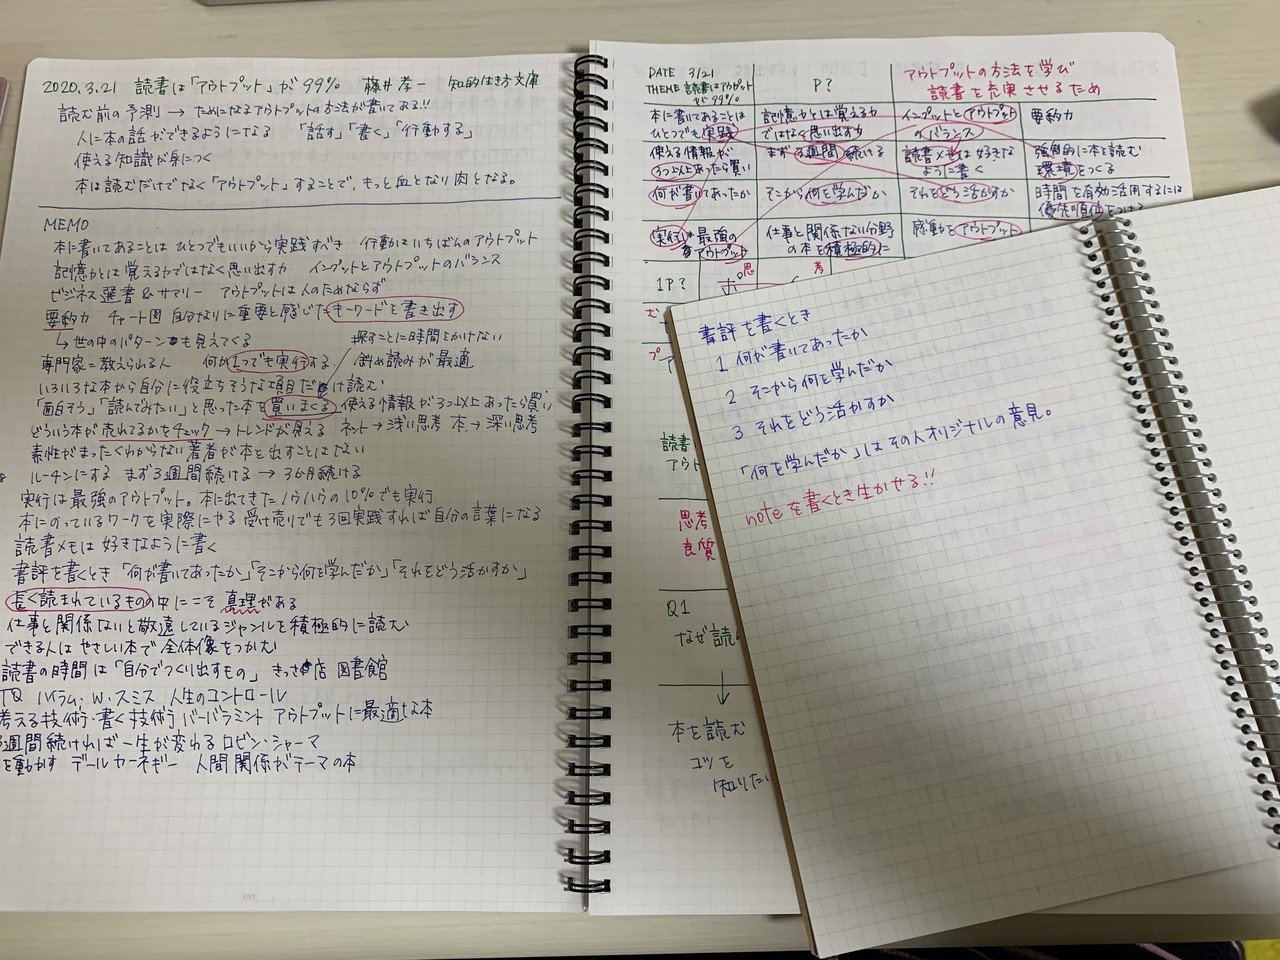 2020.3.21 読書は「アウトプット」が99% 藤井孝一 知的生き方文庫
読む前の予測 → ためになるアウトプットの方法が書いてある!!
人に本の話ができるようになる 「話す」「書く」「行動する」
使える知識が身につく
本は読むだけでなく「アウトプット」することで、もっと血となり肉となる。
MEMO
本に書いてあることはひとつでもいいから実践すべき 行動はいちばんのアウトプット
記憶力とは覚える力ではなく思い出す力 インプットとアウトプットのバランス
ビジネス選書&サマリー アウトプットは人のためならず
要約力 チャート図 自分なりに重要と感じたキーワードを書き出す
↳ 世の中のパターンも見えてくる 探すことに時間をかけない
専門家=教えられる人 何か1つでも実行する 斜め読みが最適
いろいろな本から自分に役立ちそうな項目だけ読む
「面白そう」「読んでみたい」と思った本を買いまくる 使える情報が3つ以上あったら買い
どういう本が売れてるかをチェック → トレンドが見える ネット→浅い思考 本→深い思考
素性がまったくわからない著者が本を出すことはない
ルーチンにする まず3週間続ける → 3か月続ける
実行は最強のアウトプット。本に出てきたノウハウの10%でも実行
本にのっているワークを実際にやる 受け売りでも3回実践すれば自分の言葉になる
読書メモは好きなように書く
書評を書くとき「何が書いてあったか」「そこから何を学んだか」「それをどう活かすか」
長く読まれているものの中にこそ真理がある
仕事と関係ないと敬遠しているジャンルを積極的に読む
できる人はやさしい本で全体像をつかむ
読書の時間は「自分でつくり出すもの」 きっさ店 図書館
TQ ハイラム・W・スミス 人生のコントロール
考える技術・書く技術 バーバラミント アウトプットに最適な本
3週間続ければ一生が変わる ロビン・シャーマ
を動かす デールカーネギー 人間関係がテーマの本
DATE 3/21
THEME 読書はアウトプットが99%
P?
アウトプットの方法を学び
読書を充実させるため
本に書いてあることは
ひとつでも実践
記憶力とは覚える力
ではなく思い出す力
インプットとアウトプット
のバランス
要約力
使える情報が
3つ以上あったら買い
まず3週間続ける
読書メモは好きな
ように書く
強制的に本を読む
環境をつくる
何が書いてあったか
そこから何を学んだか
それをどう活かすか
時間を有効活用するには
優先順位をつける
実行は最強の
アウトプット
仕事と関係ない分野
の本を積極的に
感動をアウトプット
1P?
思
考
読書
アウト
思考
良質
Q1
なぜ読
↓
本を読む
コツを
知りたい
書評を書くとき
1 何が書いてあったか
2 そこから何を学んだか
3 それをどう活かすか
「何を学んだか」はその人オリジナルの意見。
noteを書くとき生かせる!!